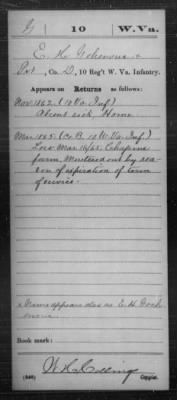 G | 10 | W.Va.
E. H. Gohenour x
Pvt, Co. D, 10 Reg't W. Va. Infantry.
Appears on Returns as follows:
Nov. 1862. (10 Va. Inf.)
Absent sick, Home
Mar 1865. (Co B. 10 W.Va. Inf.)
Loss Mar 16/65. Chapins
farm, Mustered out by rea-
son of expiration of term
of service.
x Name appears also as E. H. Goch-
enour
Book mark:
(546)
Copyist.